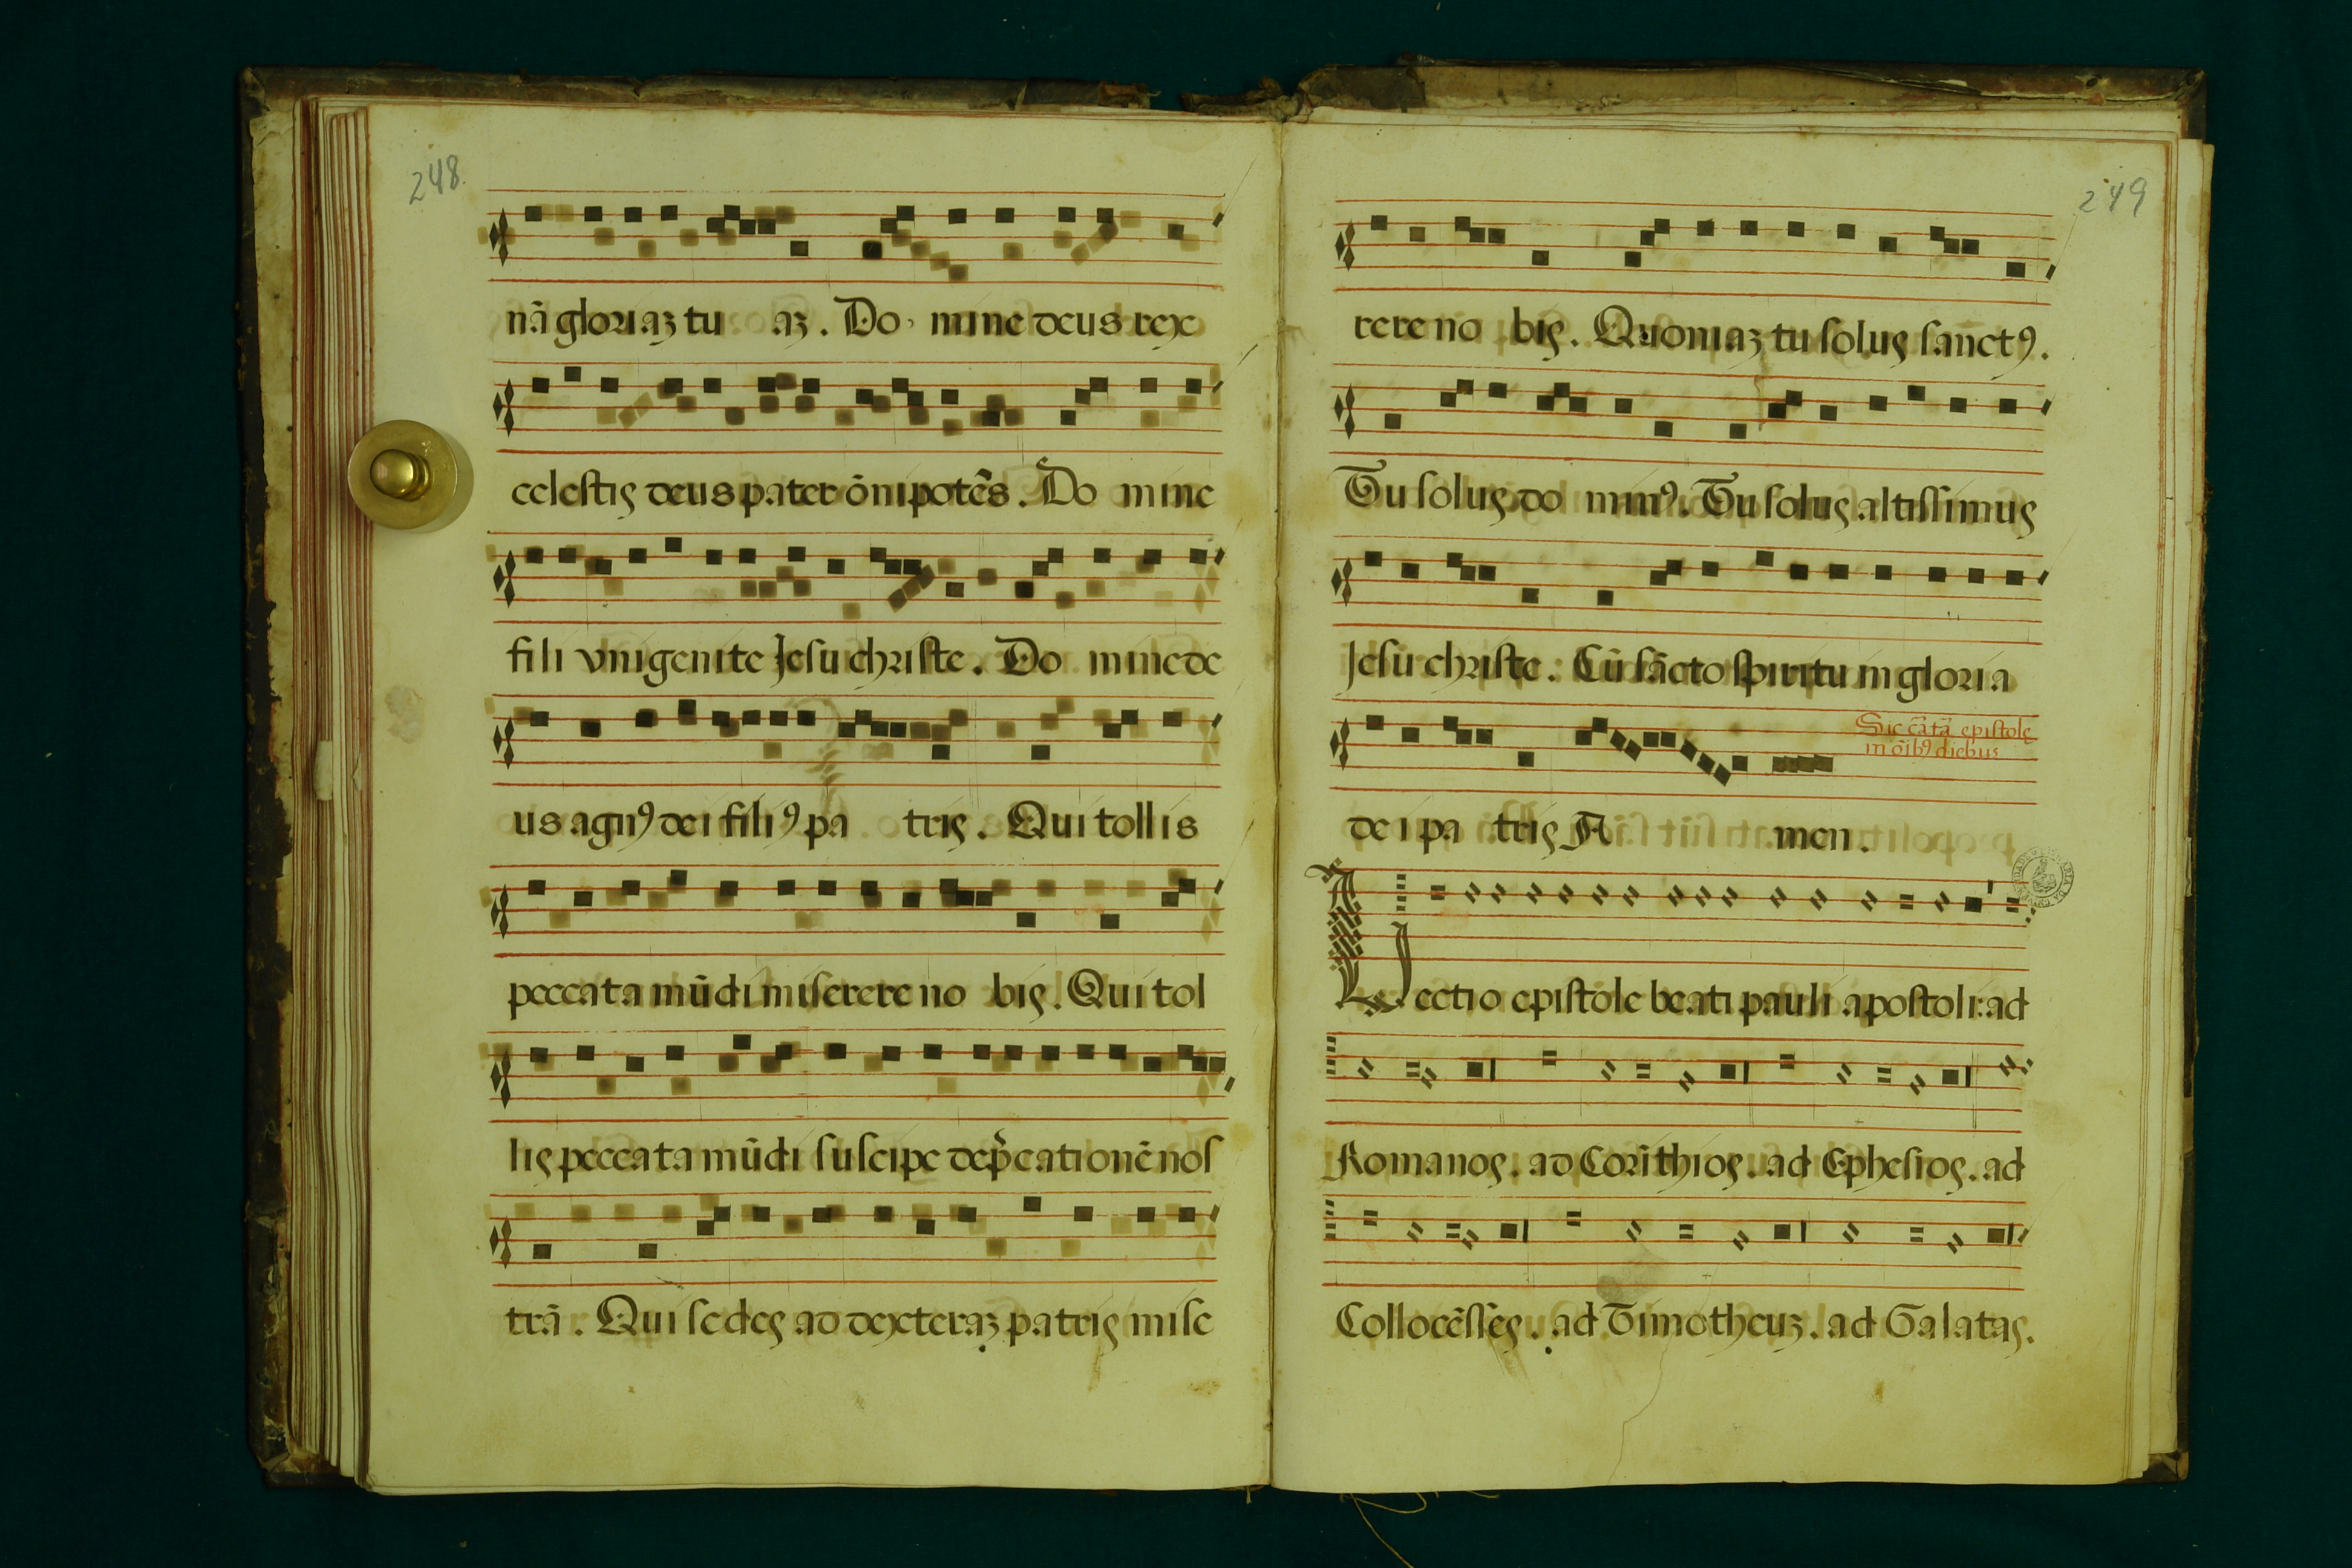 248
nā gloriaꝫ tu aꝫ. Do mine deus rex
celestis deus pater ōnipotēs. Do mine
fili vnigenite Jesu christe. Do mine de
us agnꝰ dei filiꝰ pa tris. Qui tollis
peccata mūdi miserere no bis. Qui tol
lis peccata mūdi suscipe dep̄cationē nos
trā. Qui sedes ad dexteraꝫ patris mise
249
rere no bis. Quoniaꝫ tu solus sanctꝰ.
Tu solus do minꝰ. Tu solus altissimus
Jesu christe. Cū sācto spiritu in gloria
Sic cātāt epistole
in oībꝰ diebus
dei pa tris A men.
Lectio epistole beati pauli apostoli: ad
Romanos. ad Corīthios. ad Ephesios. ad
Collocēsses. ad Timotheuꝫ. ad Galatas.